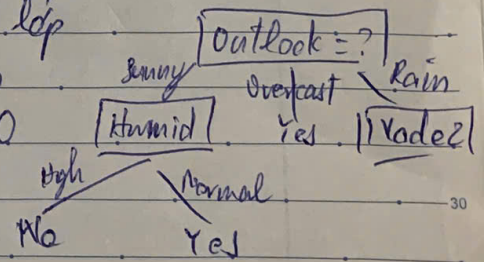 lớp Outlook = ?
Sunny Overcast Rain
Humid Yes Node2
High Normal
30
No Yes